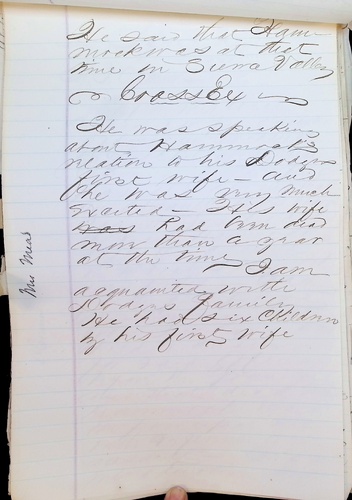 He said that Ham
mock was at that
time in Sierra Valley
Cross Ex
He was speaking
about Hammock's
relation to his Dodges
first wife - and
he was very much
excited - His wife
had been dead
more than a year
at the time, I am
acquainted with
Dodges family
He had six Children
by his first wife
Mrs Mear